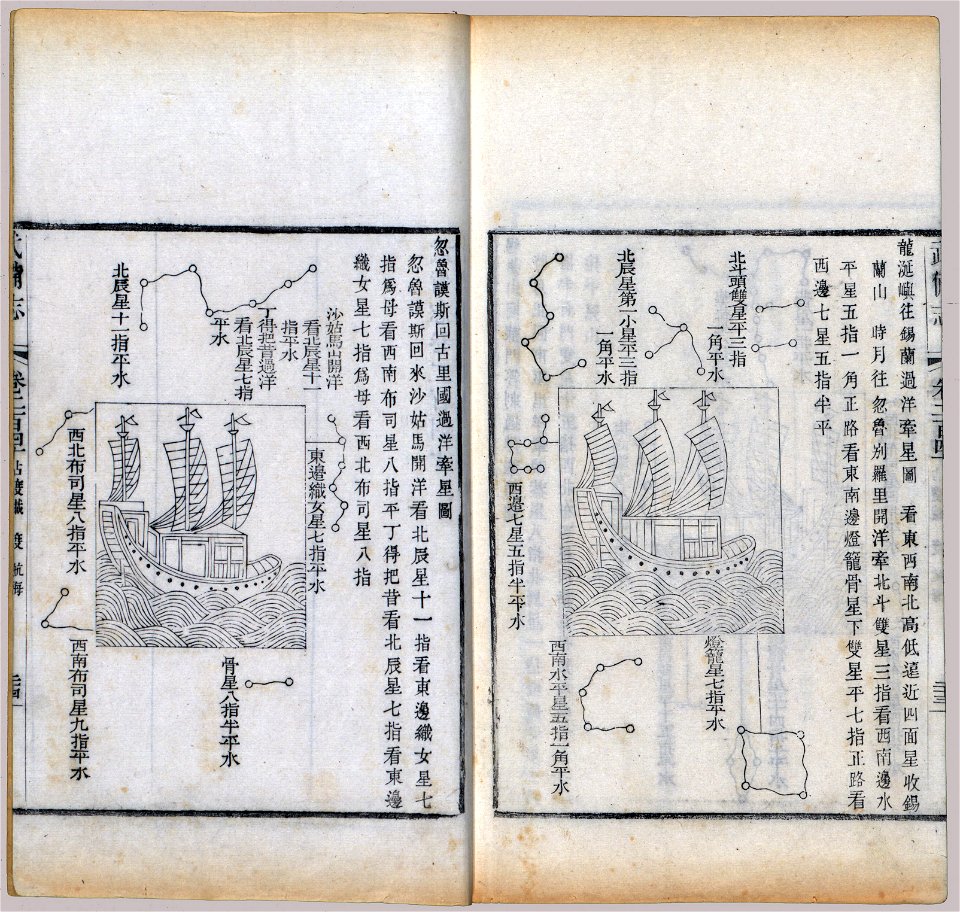 龍涎嶼往錫蘭過洋牽星圖　看東西南北高低遠近四面星收錫
蘭山　時月往忽魯別羅里開洋牽北斗雙星三指看西南邊水
平星五指一角正路看東南邊燈籠骨星下雙星平七指正路看
西邊七星五指半平
北斗頭雙星平三指
一角平水
北辰星第一小星平三指
一角平水
西邊七星五指半平水
燈籠星七指平水
西南水平星五指一角平水
忽魯謨斯回古里國過洋牽星圖
忽魯謨斯回來沙姑馬開洋看北辰星十一指看東邊織女星七
指為母看西南布司星八指平丁得把昔看北辰星七指看東邊
織女星七指為母看西北布司星八指
沙姑馬山開洋
看北辰星十一
指平水
丁得把昔過洋
看北辰星七指
平水
北辰星十一指平水
東邊織女星七指平水
西北布司星八指平水
骨星八指半平水
西南布司星九指平水
武備志
卷二百四十
航海